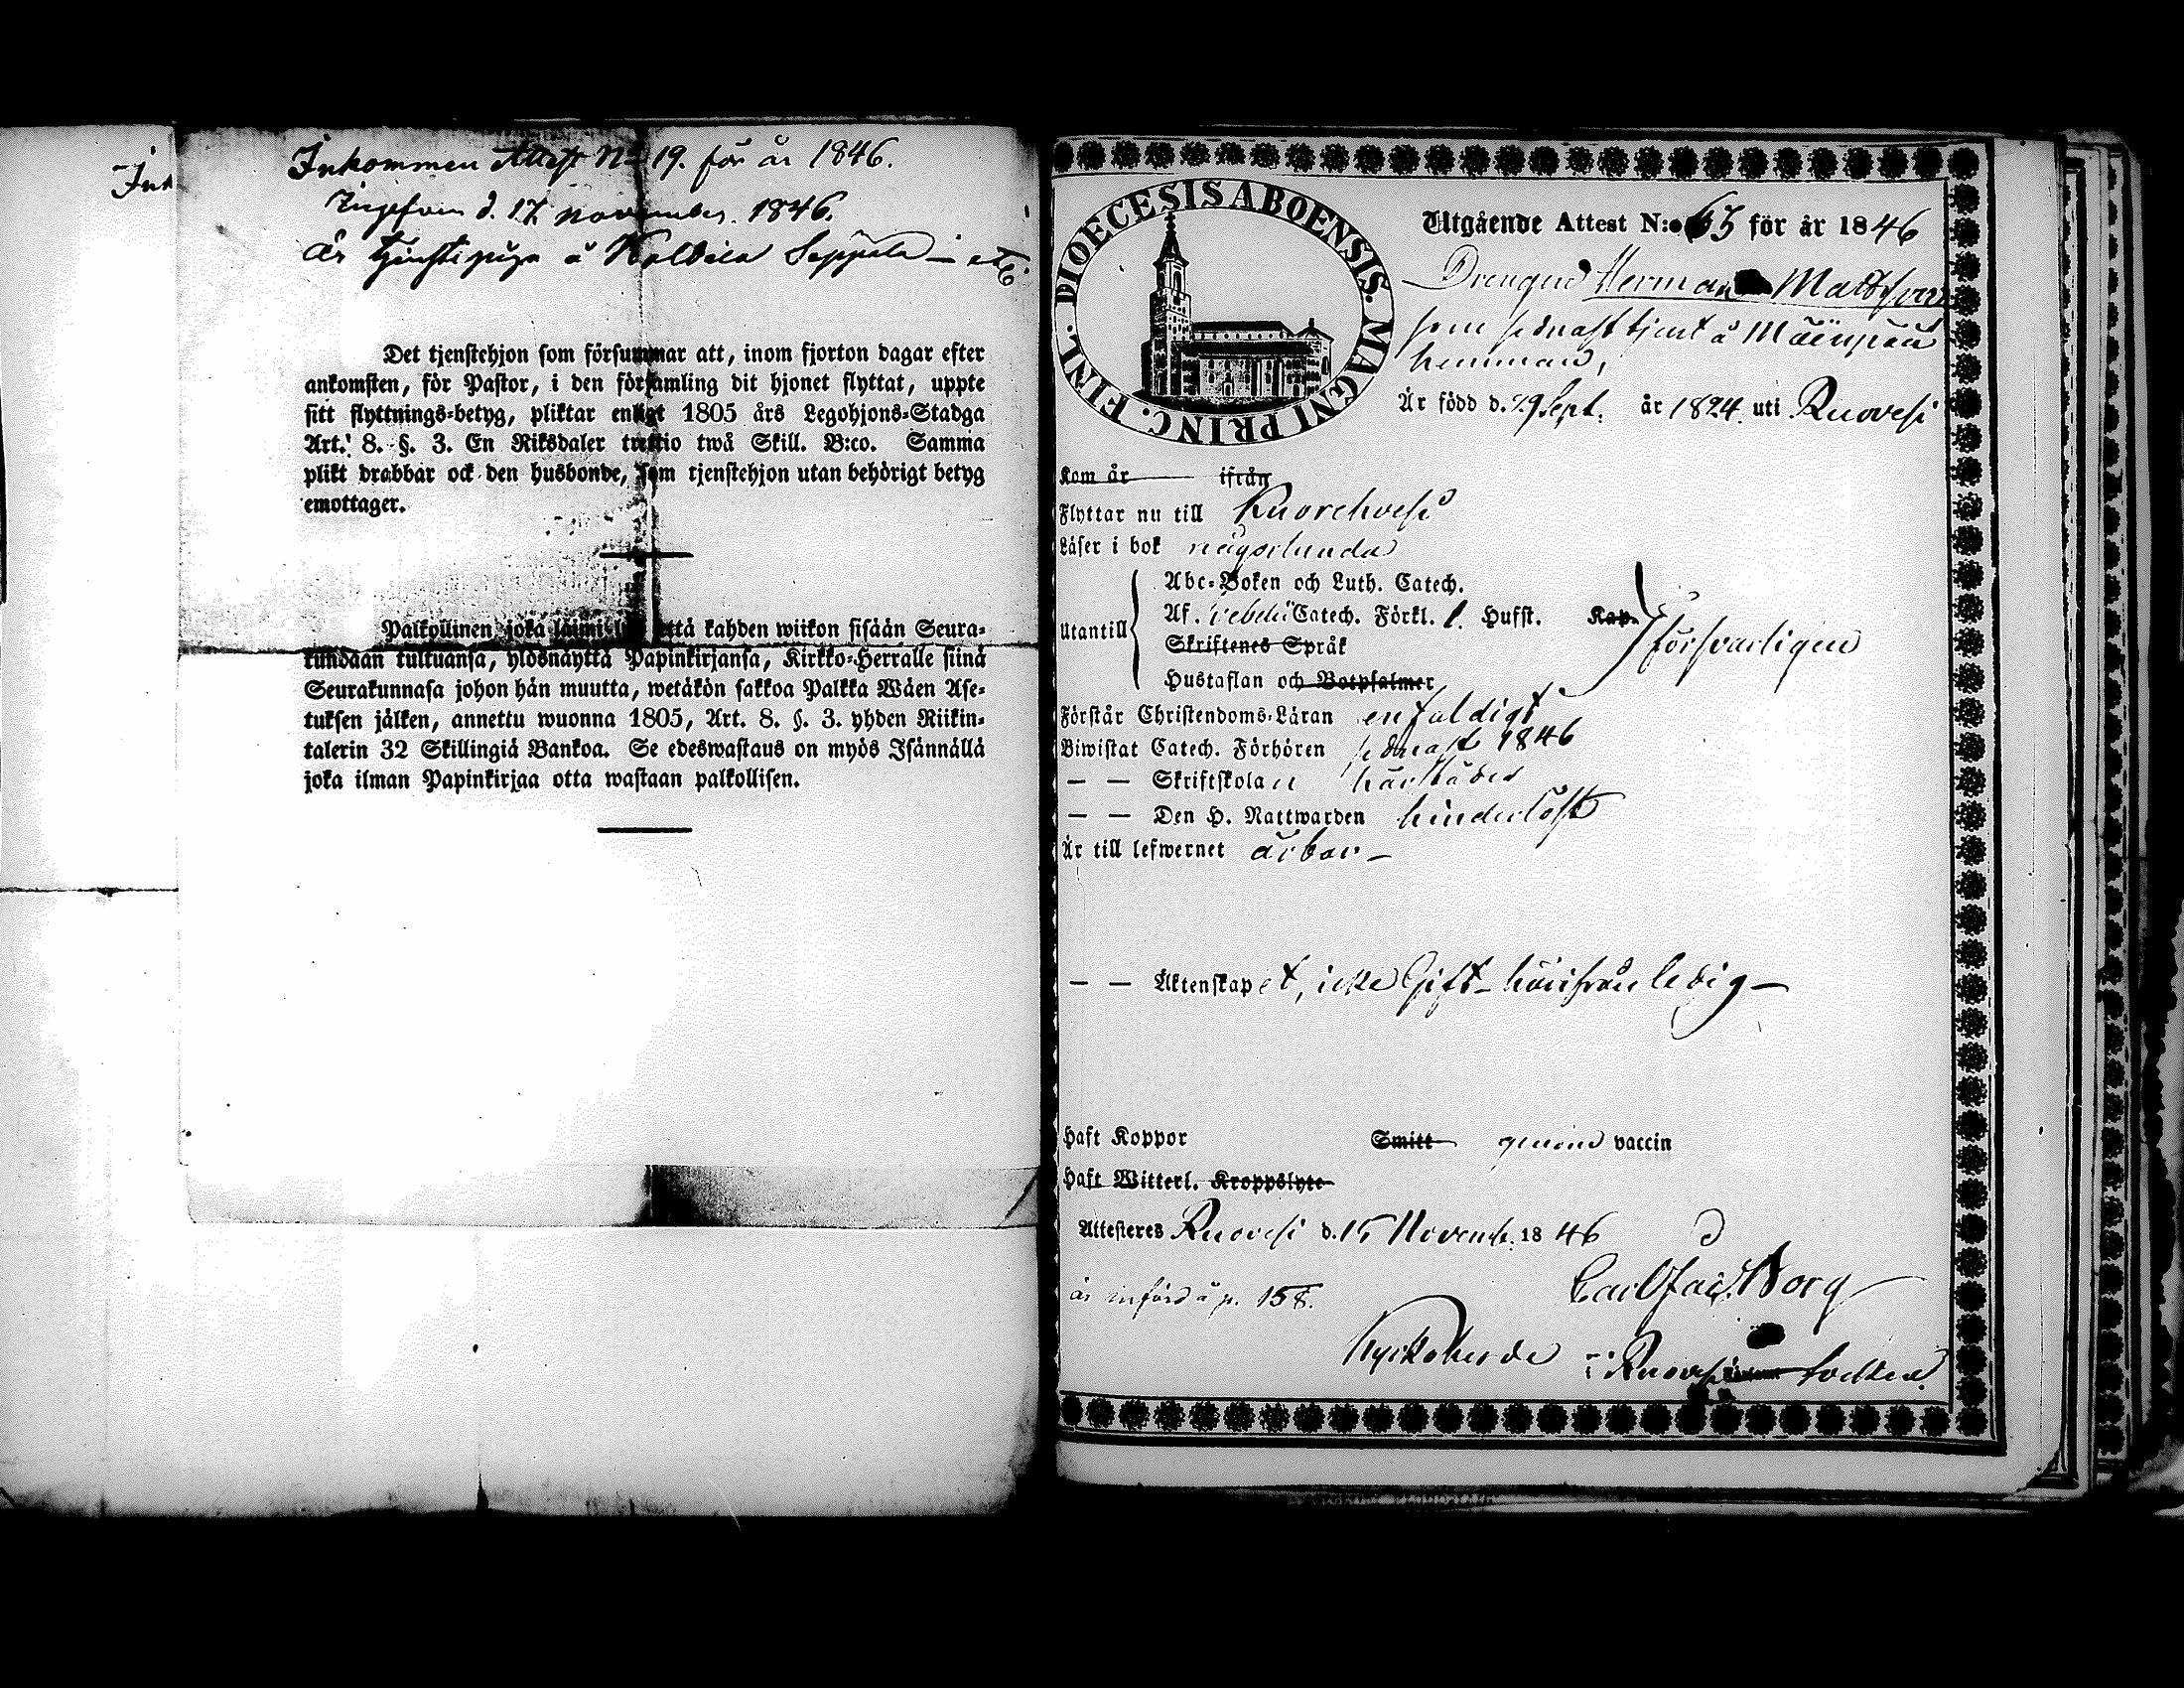 Ink
Inkommen Attest No 19. för år 1846.
d. 17 november. 1846.
är tjenstepiga å Seppälä
Det tjenstehjon som försummar att, inom fjorton dagar efter
ankomsten, för Pastor, i den församling dit hjonet flyttat, uppte
sitt flyttnings-betyg, pliktar enligt 1805 års Legohjons-Stadga
Art. 8. §. 3. En Riksdaler trettio twå Skill. B:co. Samma
plikt drabbar ock den husbonde, som tjenstehjon utan behörigt betyg
emottager.
Palkollinen joka laimi lyö että kahden wiikon sisään Seura-
kundaan tultuansa, ylösnäyttä Papinkirjansa, Kirkko-Herralle siinä
Seurakunnasa johon hän muutta, wetäkön sakkoa Palkka Wäen Ase-
tuksen jälken, annettu wuonna 1805, Art. 8. §. 3. yhden Riikin-
talerin 32 Skillingiä Bankoa. Se edeswastaus on myös Isännällä
joka ilman Papinkirjaa otta wastaan palkollisen.
DIOECESIS ABOENSIS. MAGNI PRINC. FINL.
Utgående Attest N:o 63 för år 1846
Drengen Herman Mattsson
som sednast tjent å Mäenpää
hemman,
Är född d. 29 Sept. år 1824 uti Ruovesi
Kom år ifrån
Flyttar nu till Kuorehvesi
Läser i bok någorlunda
Utantill
Abc-Boken och Luth. Catech.
Af. Catech. Förkl. 1. Husst. Kap.
Skriftenes Språk
försvarligen
Hustaflan och Botpsalmer
Förstår Christendoms-Läran enfaldigt
Biwistat Catech. Förhören sednast 1846
— — Skriftskolan härstädes
— — Den H. Nattwarden hinderlöst
Är till lefwernet ärbar —
— — Äktenskapet, icke Gift — härifrån ledig —
Haft Koppor Smitt genom vaccin
Haft Witterl. Kroppslyte
Attesteres Ruovesi d. 15 Novemb. 1846
är införd å p. 158.
Carl Borg
Kyrkoherde i Ruovesi